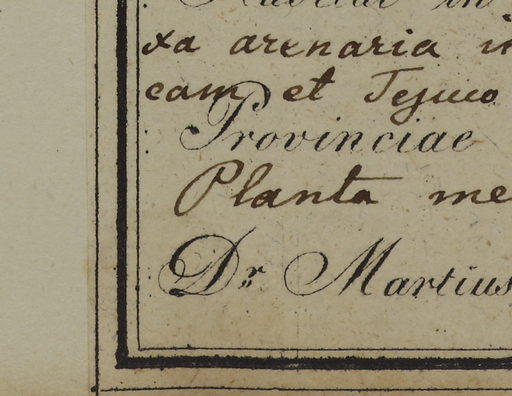 Habitat in
xa arenaria in
cam et Tejuco
Provinciae
Planta me
Dr. Martius